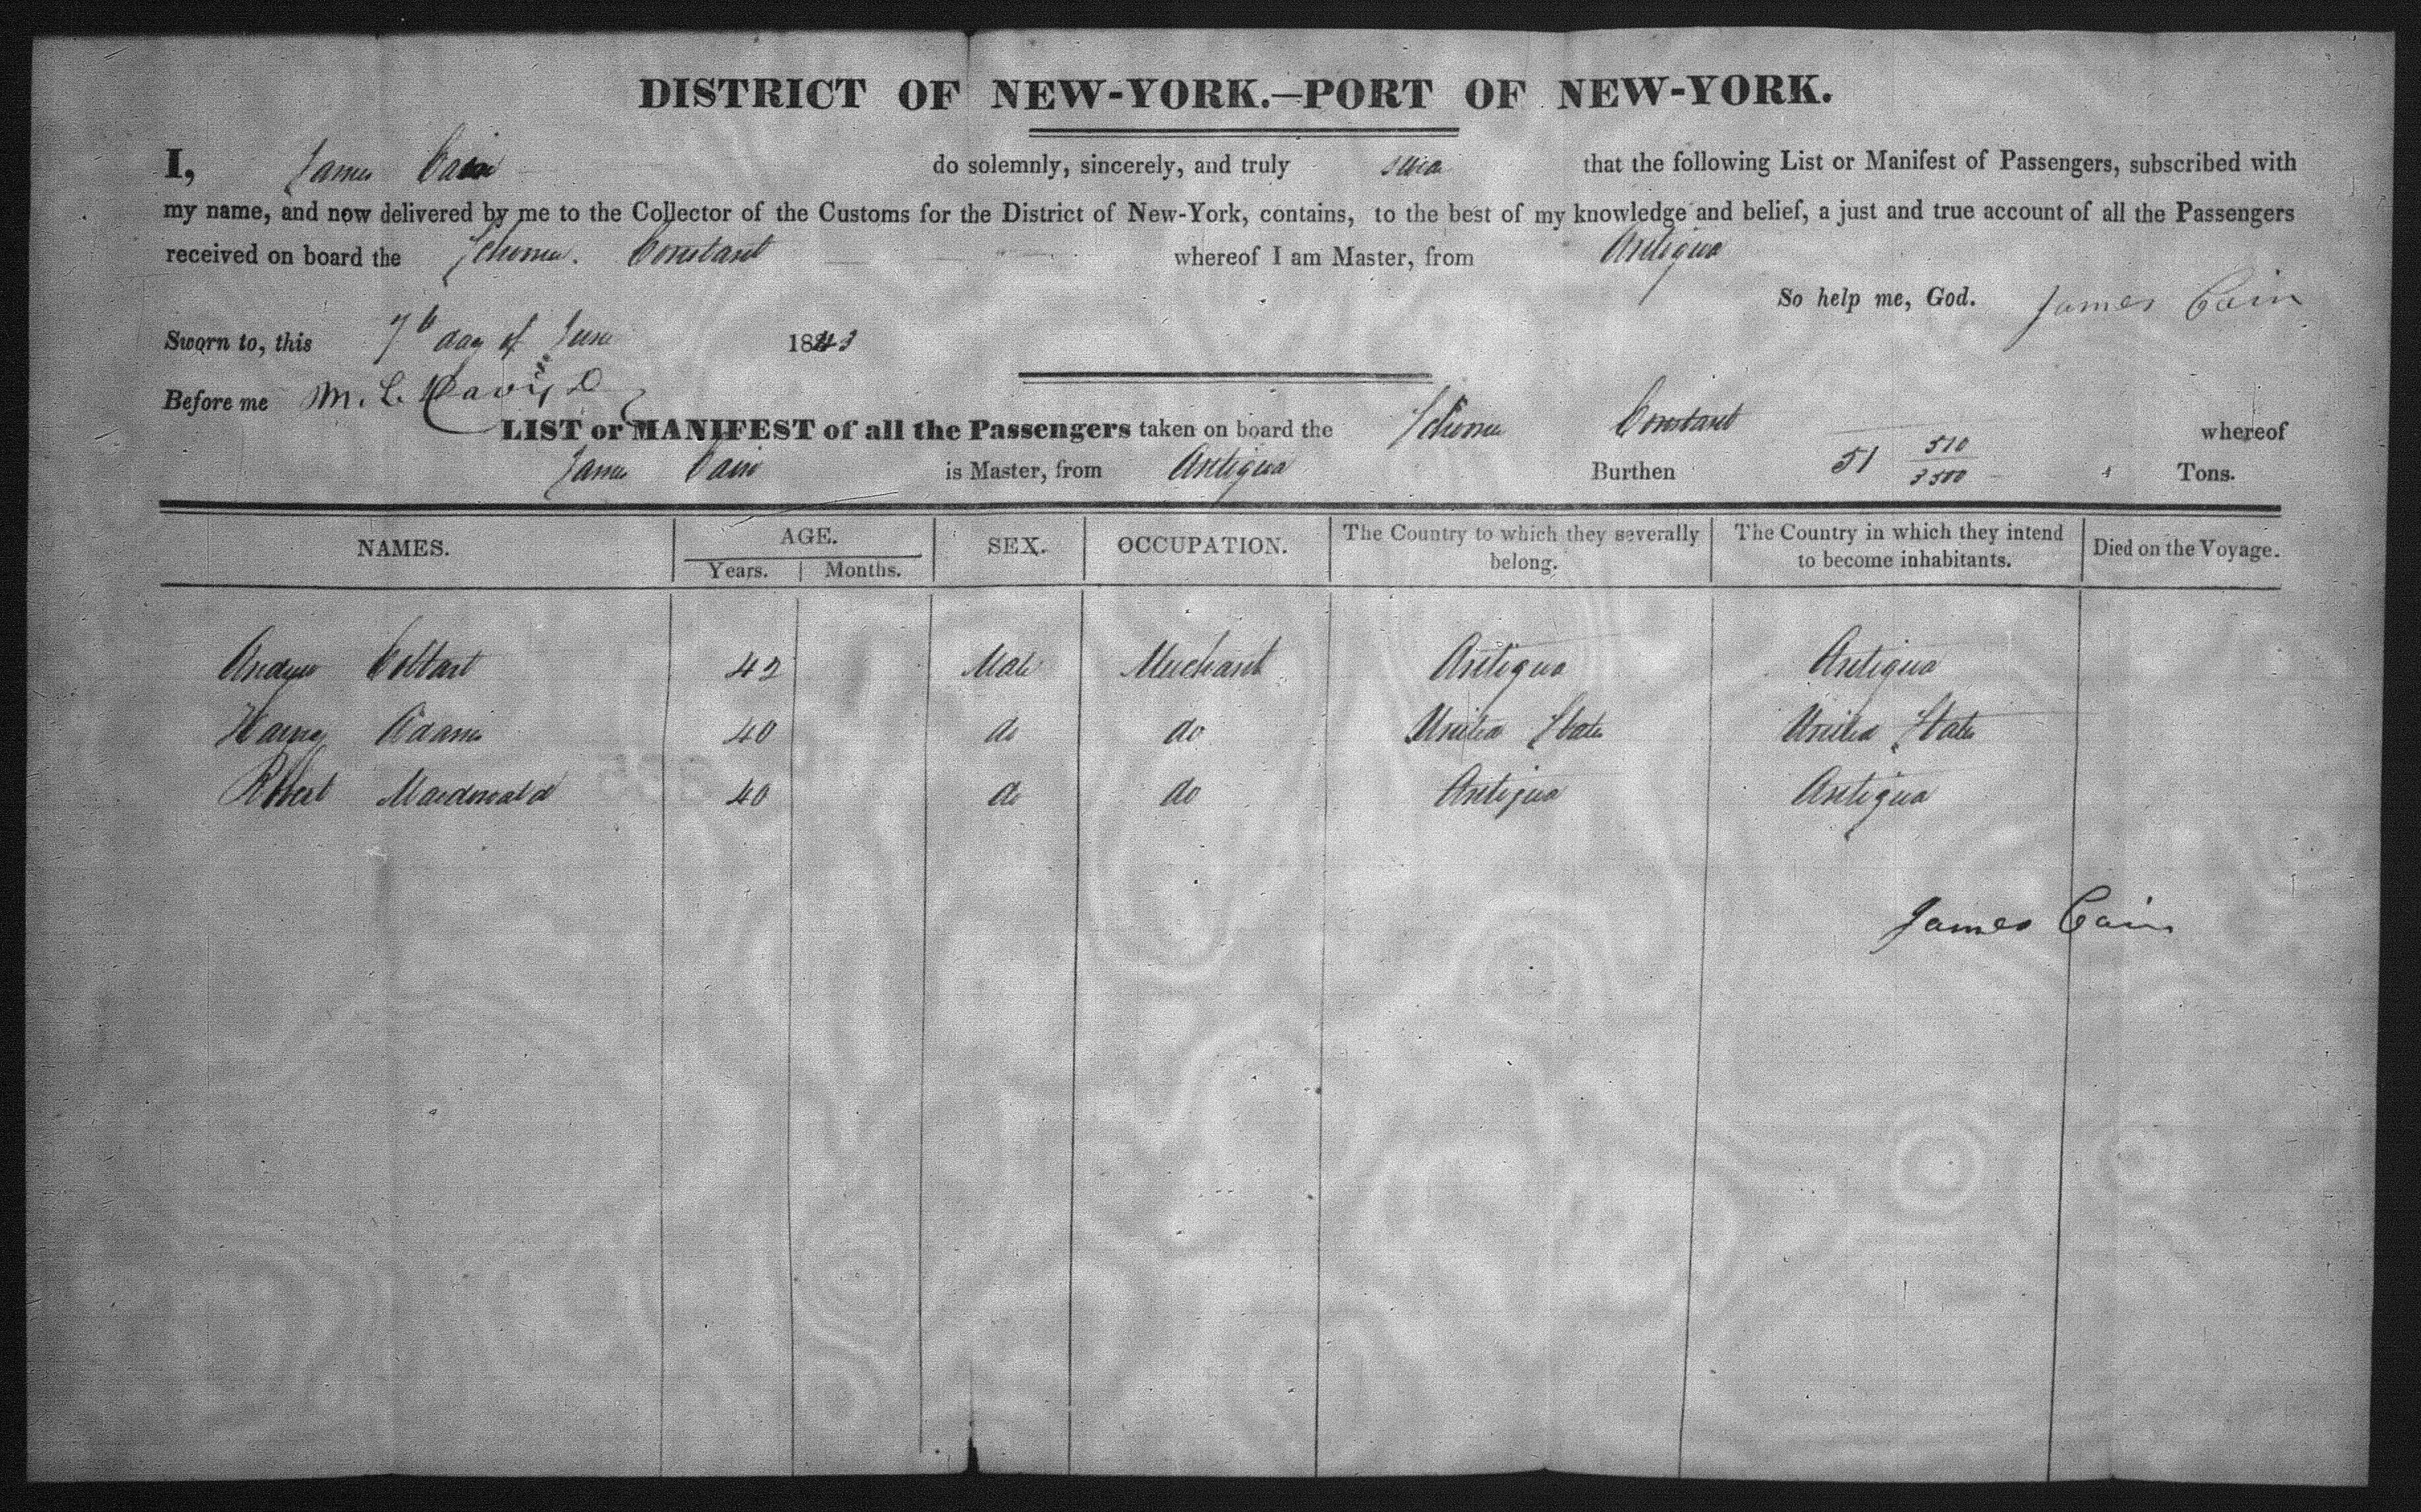 DISTRICT OF NEW-YORK.—PORT OF NEW-YORK.
I, James Cain do solemnly, sincerely, and truly that the following List or Manifest of Passengers, subscribed with
my name, and now delivered by me to the Collector of the Customs for the District of New-York, contains, to the best of my knowledge and belief, a just and true account of all the Passengers
received on board the Constant whereof I am Master, from Antigua
So help me, God. James Cain
Sworn to, this 7th day of June 1843
Before me M. L. Davis
LIST or MANIFEST of all the Passengers taken on board the Constant whereof
James Cain is Master, from Antigua Burthen 51 Tons.
NAMES. AGE. Years. Months. SEX. OCCUPATION. The Country to which they severally belong. The Country in which they intend to become inhabitants. Died on the Voyage.
Andrew 42 Male Merchant Antigua Antigua
Adams 40 do do United States United States
Robert Macdonald 40 do do Antigua Antigua
James Cain